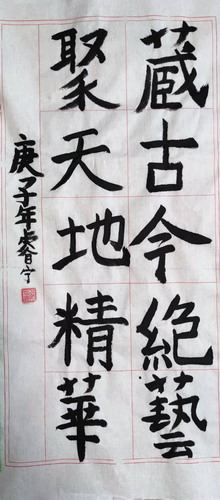 藏古今絕藝
聚天地精華
庚子年睿宁